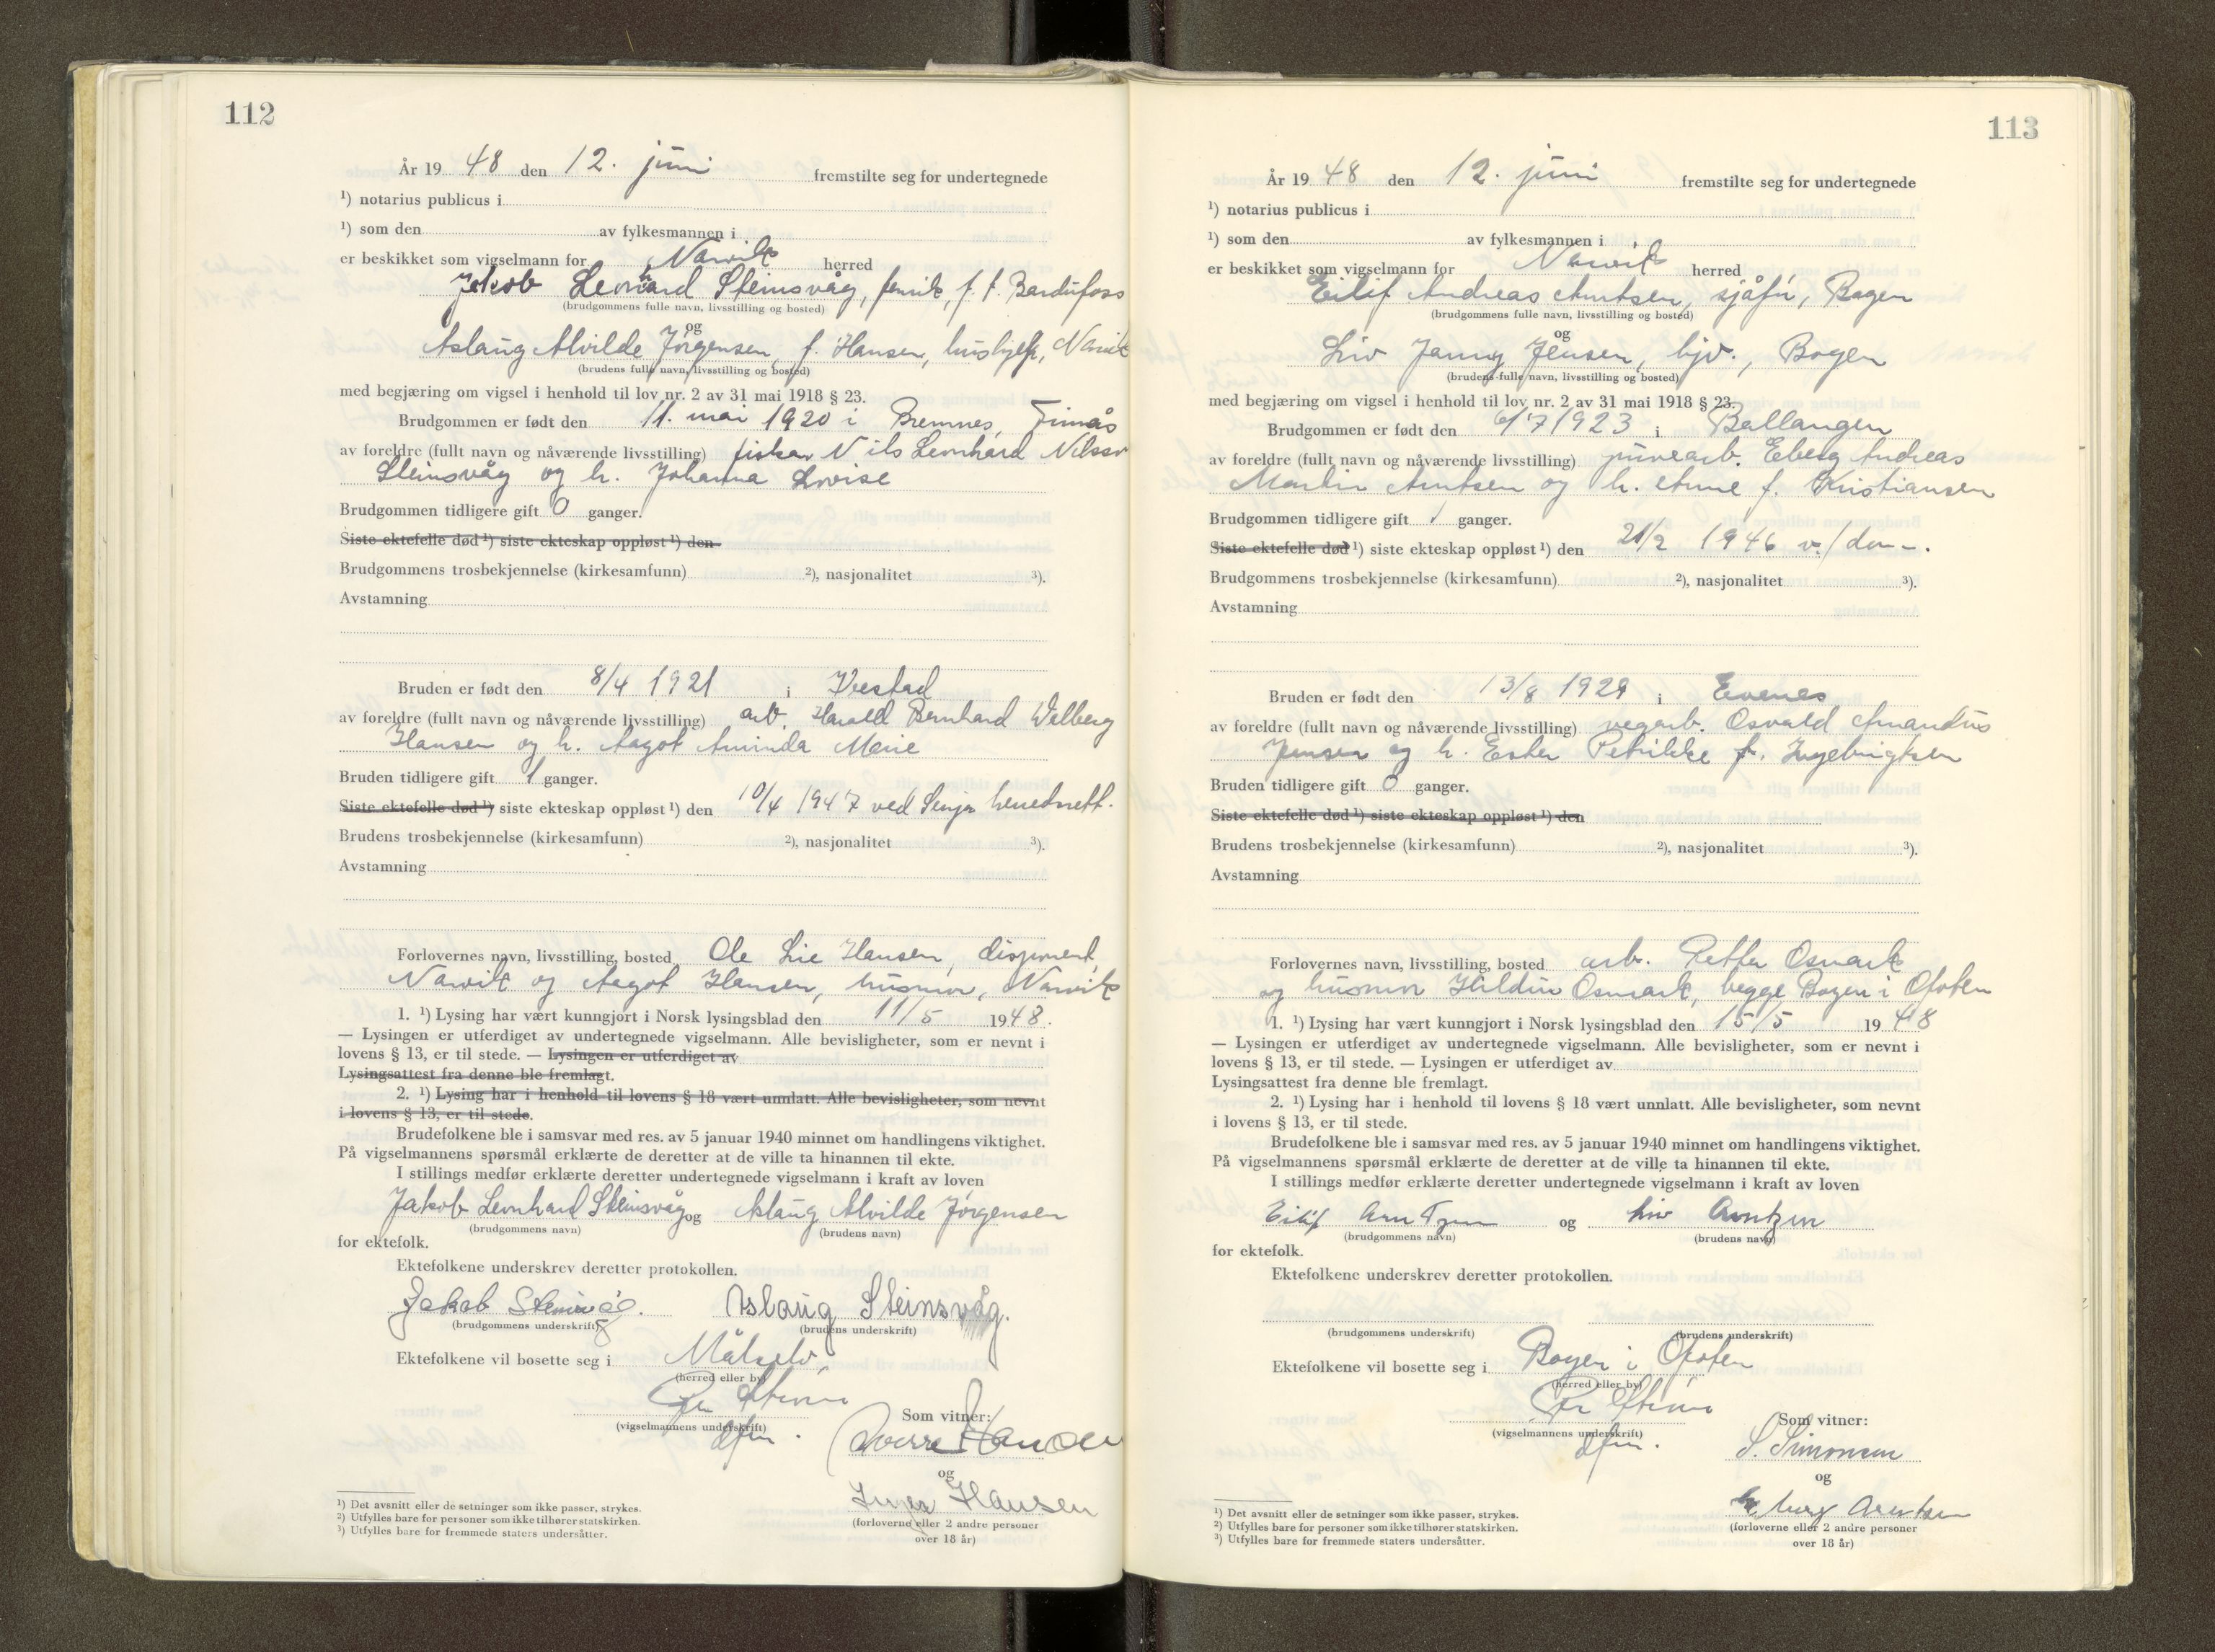 112
År 19 48 den 12. juni fremstilte seg for undertegnede
¹) notarius publicus i
¹) som den av fylkesmannen i
er beskikket som vigselmann for Narvik herred
Jakob Leonhard Steinsvåg, fenrik, f. t. Bardufoss
(brudgommens fulle navn, livsstilling og bosted)
og
Aslaug Alvilde Jørgensen, f. Hansen, hushjelp, Narvik
(brudens fulle navn, livsstilling og bosted)
med begjæring om vigsel i henhold til lov nr. 2 av 31 mai 1918 § 23.
Brudgommen er født den 11. mai 1920 i Bremnes, Finnås
av foreldre (fullt navn og nåværende livsstilling) fisker Nils Leonhard Nilssen
Steinsvåg og h. Johanna Lovise
Brudgommen tidligere gift 0 ganger.
Siste ektefelle død ¹) siste ekteskap oppløst ¹) den
Brudgommens trosbekjennelse (kirkesamfunn) ²), nasjonalitet ³).
Avstamning
Bruden er født den 8/4 1921 i Ibestad
av foreldre (fullt navn og nåværende livsstilling) arb. Harald Bernhard Velberg
Hansen og h. Aagot Aminda Marie
Bruden tidligere gift 1 ganger.
Siste ektefelle død ¹) siste ekteskap oppløst ¹) den 10/4 1947 ved Senja herredsrett.
Brudens trosbekjennelse (kirkesamfunn) ²), nasjonalitet ³).
Avstamning
Forlovernes navn, livsstilling, bosted Ole Lie Hansen, disponent,
Narvik og Aagot Hansen, husmor, Narvik
1. ¹) Lysing har vært kunngjort i Norsk lysingsblad den 11/5 1948.
— Lysingen er utferdiget av undertegnede vigselmann. Alle bevisligheter, som er nevnt i
lovens § 13, er til stede. — Lysingen er utferdiget av
Lysingsattest fra denne ble fremlagt.
2. ¹) Lysing har i henhold til lovens § 18 vært unnlatt. Alle bevisligheter, som nevnt
i lovens § 13, er til stede.
Brudefolkene ble i samsvar med res. av 5 januar 1940 minnet om handlingens viktighet.
På vigselmannens spørsmål erklærte de deretter at de ville ta hinannen til ekte.
I stillings medfør erklærte deretter undertegnede vigselmann i kraft av loven
Jakob Leonhard Steinsvåg og Aslaug Alvilde Jørgensen
(brudgommens navn) (brudens navn)
for ektefolk.
Ektefolkene underskrev deretter protokollen.
Jakob Steinsvåg. Aslaug Steinsvåg.
(brudgommens underskrift) (brudens underskrift)
Ektefolkene vil bosette seg i Målselv,
(herred eller by)
Som vitner:
(vigselmannens underskrift)
dfm. Sverre Hansen
og
Inger Hansen
(forloverne eller 2 andre personer
over 18 år)
¹) Det avsnitt eller de setninger som ikke passer, strykes.
²) Utfylles bare for personer som ikke tilhører statskirken.
³) Utfylles bare for fremmede staters undersåtter.
113
År 19 48 den 12. juni fremstilte seg for undertegnede
¹) notarius publicus i
¹) som den av fylkesmannen i
er beskikket som vigselmann for Narvik herred
Eilif Andreas Arntsen, sjåfør, Bogen
(brudgommens fulle navn, livsstilling og bosted)
og
Liv Jenny Jensen, hjv., Bogen
(brudens fulle navn, livsstilling og bosted)
med begjæring om vigsel i henhold til lov nr. 2 av 31 mai 1918 § 23.
Brudgommen er født den 6/7 1923 i Ballangen
av foreldre (fullt navn og nåværende livsstilling) gruvearb. Eberg Andreas
Martin Arntsen og h. Anne f. Kristiansen
Brudgommen tidligere gift 1 ganger.
Siste ektefelle død ¹) siste ekteskap oppløst ¹) den 21/2 1946 v./dom.
Brudgommens trosbekjennelse (kirkesamfunn) ²), nasjonalitet ³).
Avstamning
Bruden er født den 13/8 1929 i Evenes
av foreldre (fullt navn og nåværende livsstilling) vegarb. Osvald Amandus
Jensen og h. Ester Petrikke f. Ingebrigtsen
Bruden tidligere gift 0 ganger.
Siste ektefelle død ¹) siste ekteskap oppløst ¹) den
Brudens trosbekjennelse (kirkesamfunn) ²), nasjonalitet ³).
Avstamning
Forlovernes navn, livsstilling, bosted arb. Petter Osmark
og husmor Hildur Osmark, begge Bogen i Ofoten
1. ¹) Lysing har vært kunngjort i Norsk lysingsblad den 15/5 1948
— Lysingen er utferdiget av undertegnede vigselmann. Alle bevisligheter, som er nevnt i
lovens § 13, er til stede. — Lysingen er utferdiget av
Lysingsattest fra denne ble fremlagt.
2. ¹) Lysing har i henhold til lovens § 18 vært unnlatt. Alle bevisligheter, som nevnt
i lovens § 13, er til stede.
Brudefolkene ble i samsvar med res. av 5 januar 1940 minnet om handlingens viktighet.
På vigselmannens spørsmål erklærte de deretter at de ville ta hinannen til ekte.
I stillings medfør erklærte deretter undertegnede vigselmann i kraft av loven
Eilif Arntzen og Liv Arntzen
(brudgommens navn) (brudens navn)
for ektefolk.
Ektefolkene underskrev deretter protokollen.
(brudgommens underskrift) (brudens underskrift)
Ektefolkene vil bosette seg i Bogen i Ofoten
(herred eller by)
Som vitner:
(vigselmannens underskrift)
dfm. S. Simonsen
og
Arntsen
(forloverne eller 2 andre personer
over 18 år)
¹) Det avsnitt eller de setninger som ikke passer, strykes.
²) Utfylles bare for personer som ikke tilhører statskirken.
³) Utfylles bare for fremmede staters undersåtter.